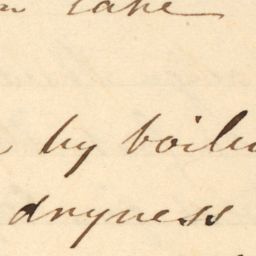 cake
by boil
dryness